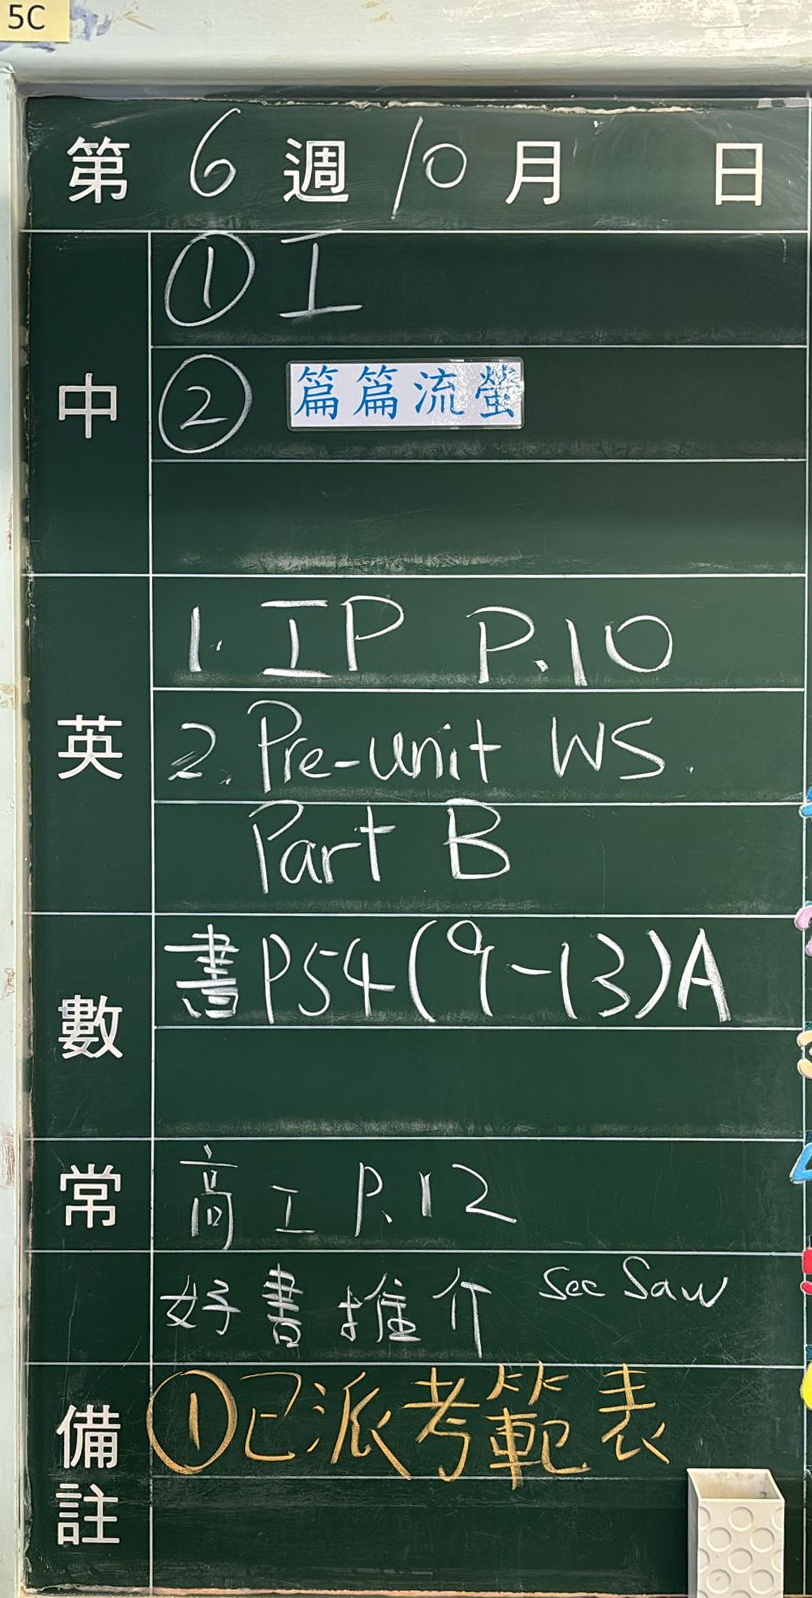 5C
第 6 週 10 月 日
中
① 工
② 篇篇流螢
英
1. IP P.10
2. Pre-unit WS.
Part B
數
書P54(9-13)A
常
高工 P.12
好書推介 See Saw
備註
①已派考範表